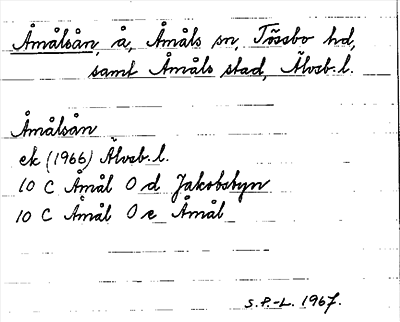 Åmålsån, å, Åmåls sn, Tössbo hd,
samt Åmåls stad, Älvsb. l.
Åmålsån
ek (1966) Älvsb. l.
10 C Åmål 0 d Jakobsbyn
10 C Åmål 0 e Åmål
S.P.-L. 1967.